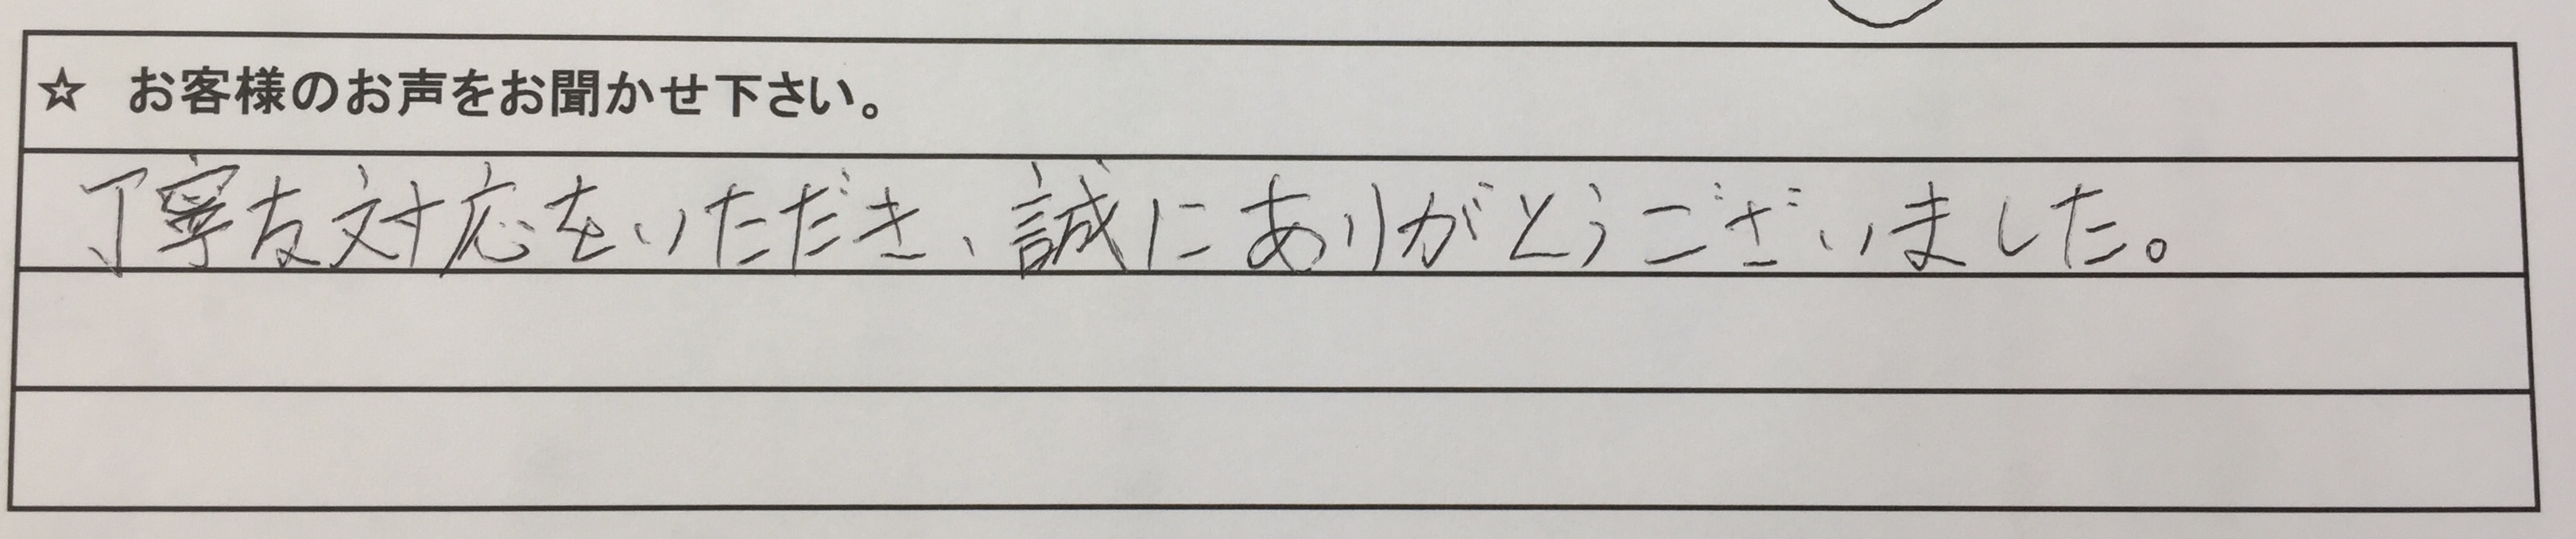 ☆ お客様のお声をお聞かせ下さい。
丁寧な対応をいただき、誠にありがとうございました。